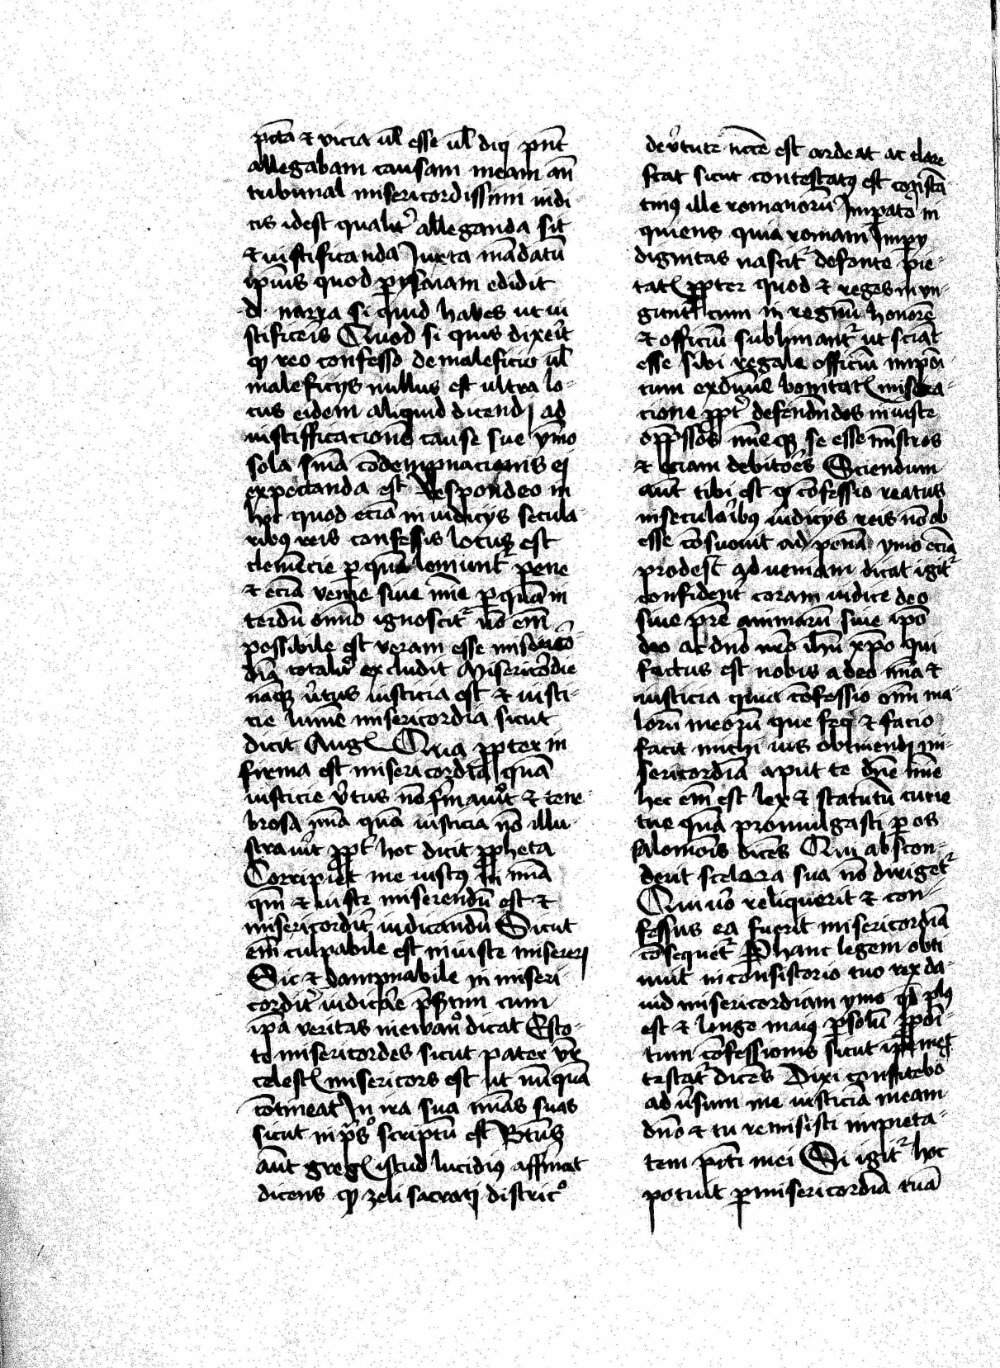 pctā et vicia ul esse ul dici pnt
allegabam causam meam an
tribunal misericordissimi iudi
cis idest qualit alleganda sit
et iustificanda Juxta mādatū
ipius quod p ysaiam edidit
d narra si quid habes ut iu
stificeris Quod si quis dixerit
qp reo confesso de maleficio ul
maleficiis nullus est ultra lo-
cus eidem aliquid dicendi ad
iustifficacionē cause sue ymo
sola snīa cōdempnacionis ei
expectanda est Respondeo in
hoc quod eciā in iudiciis secula
ribus reis confessis locus est
clemēcie p quā lemunt pene
et eciā venie sive mīe p quā in
terdū omīo ignoscit nō em
possibile est veram esse misericor
diā totalit excludit Misericordie
naqz vtus iusticia est et iusti-
cie lumē misericordia sicut
dicit Aug Quia ppter in
firma est misericordia quā
iusticie vtus nō firmavit et tene-
brosa mīa quā iusticia nō illu
stravit ppt hoc dicit ppheta
Corripiet me iustus in mīa
qm et iuste miserendū est et
misericordit iudicandū Sicut
em culpabile est iniuste misereri
Sic et dampnabile in miseri
cordit iudicare psertim cum
ipa veritas in ewan dicat Esto-
te misericordes sicut pater vr
celest misericors est ut nūquā
cōtineat In ira sua mīas suas
sicut in ps scriptū est Btus
aut greg istud lucidius affirmat
dicens qp zeli sacrati district
de vtute ncce est ardeat ac clare
scat sicut contestatus est constā
tinus ille romanorū Impator in
quiens quia romani Impii
dignitas nascit de fonte pie-
tat ppter quod et reges inun-
gunt cum in regnū honorē
et officiū sublimant ut sciāt
esse sibi regale officiū impōi
tum ex divine bonitat misera-
cione ppt defendēdos iniuste
oppssos mīeqz se esse mīstros
et eciam debitores Sciendum
aut tibi est qp cōfessio reatus
in secularibus iudiciis reis nō ob
esse cōsuevit ad penā ymo eciā
prodest ad veniam dicat igit
confident coram iudice deo
sive pre animarū sive ipo
deo ac dnō nro ihu xpo qui
factus est nobis a deo mīa et
iusticia quia cōfessio omi ma-
lorū meorū que feci et facio
facit michi ius obtinendi mi-
sericordiā aput te dne mīe
hec em est lex et statutū curie
tue quā promulgasti p os
salomōis dices Qui abscon-
derit scelera sua nō diriget
Qui vo reliquerit et con-
fessus ea fuerit misericordiā
cōsequet P hanc legem obti
nuit in consistorio tuo rex da-
vid misericordiam ymo qd plus
est et longe maius p solū ppōi-
tum cōfessionis sicut ipemet
testat dices Dixi confitebo
adusum me iusticiā meam
dnō et tu remisisti impieta-
tem pcti mei Si igit hoc
potuit p misericordiā tuā